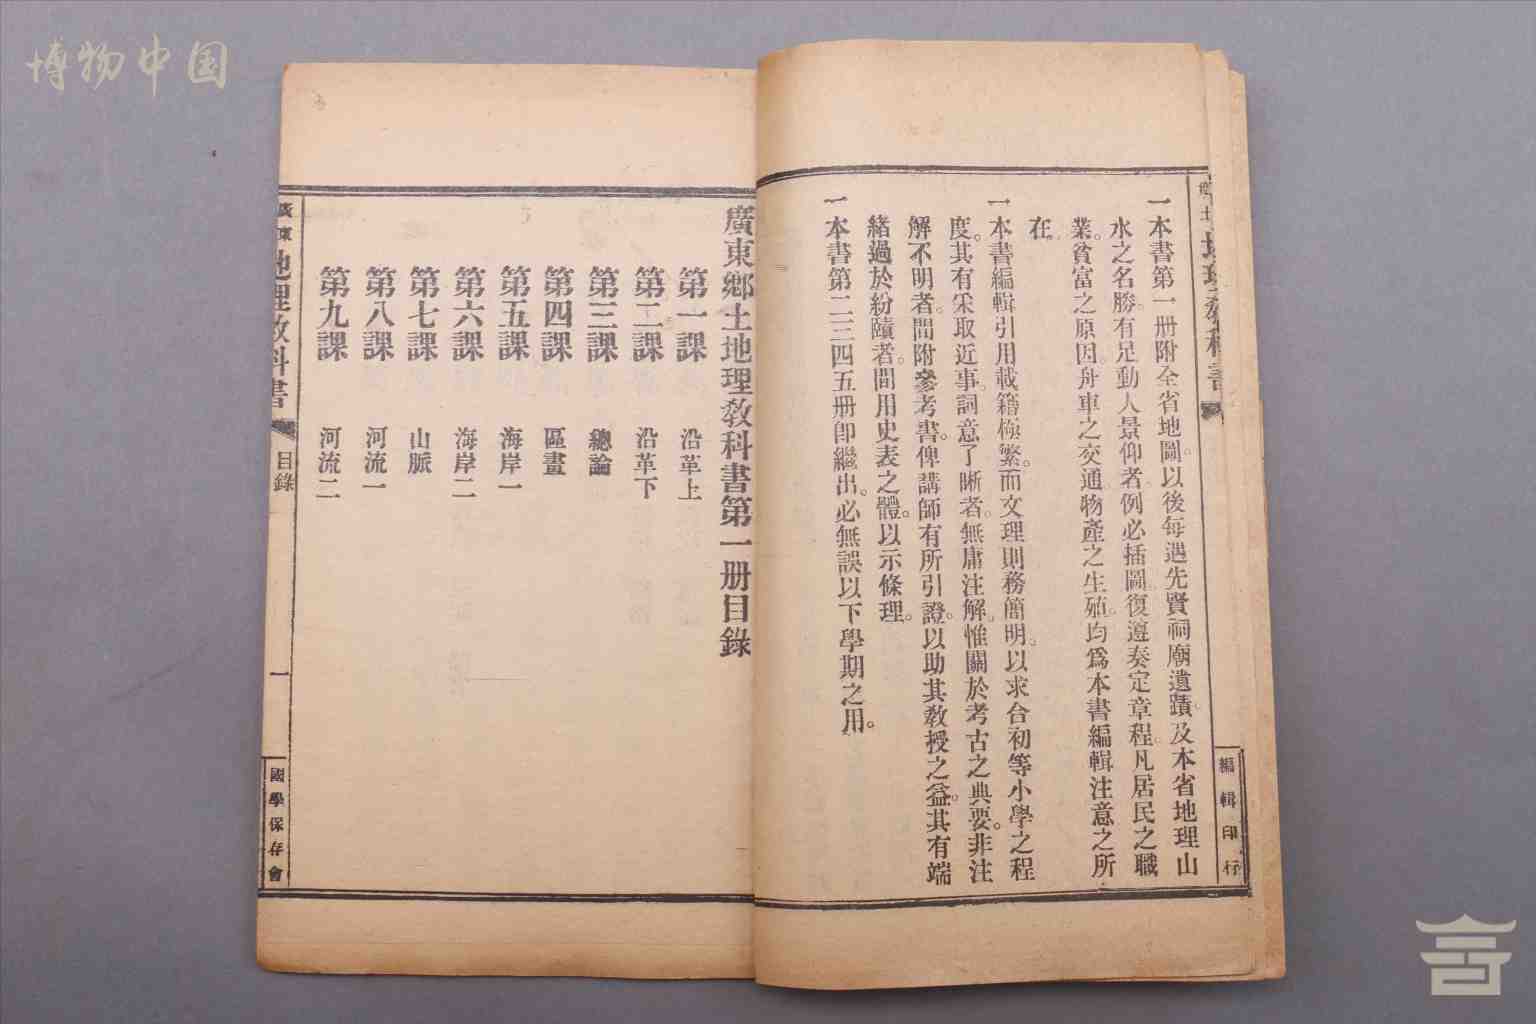 博物中国
一本書第一册附全省地圖。以後每遇先賢祠廟遺蹟。及本省地理山
水之名勝。有足動人景仰者。例必插圖。復遵奏定章程。凡居民之職
業。貧富之原因。舟車之交通。物產之生殖。均爲本書編輯注意之所
在。
一本書編輯引用載籍極繁。而文理則務簡明。以求合初等小學之程
度。其有采取近事。詞意了晰者。無庸注解。惟關於考古之典要。非注
解不明者。間附參考書。俾講師有所引證。以助其教授之益。其有端
緒過於紛賾者。間用史表之體。以示條理。
一本書第二三四五册卽繼出。必無誤以下學期之用。
編輯印行
廣東鄉土地理教科書第一册目錄
第一課 沿革上
第二課 沿革下
第三課 總論
第四課 區畫
第五課 海岸一
第六課 海岸二
第七課 山脈
第八課 河流一
第九課 河流二
地理教科書 目錄 一 國學保存會